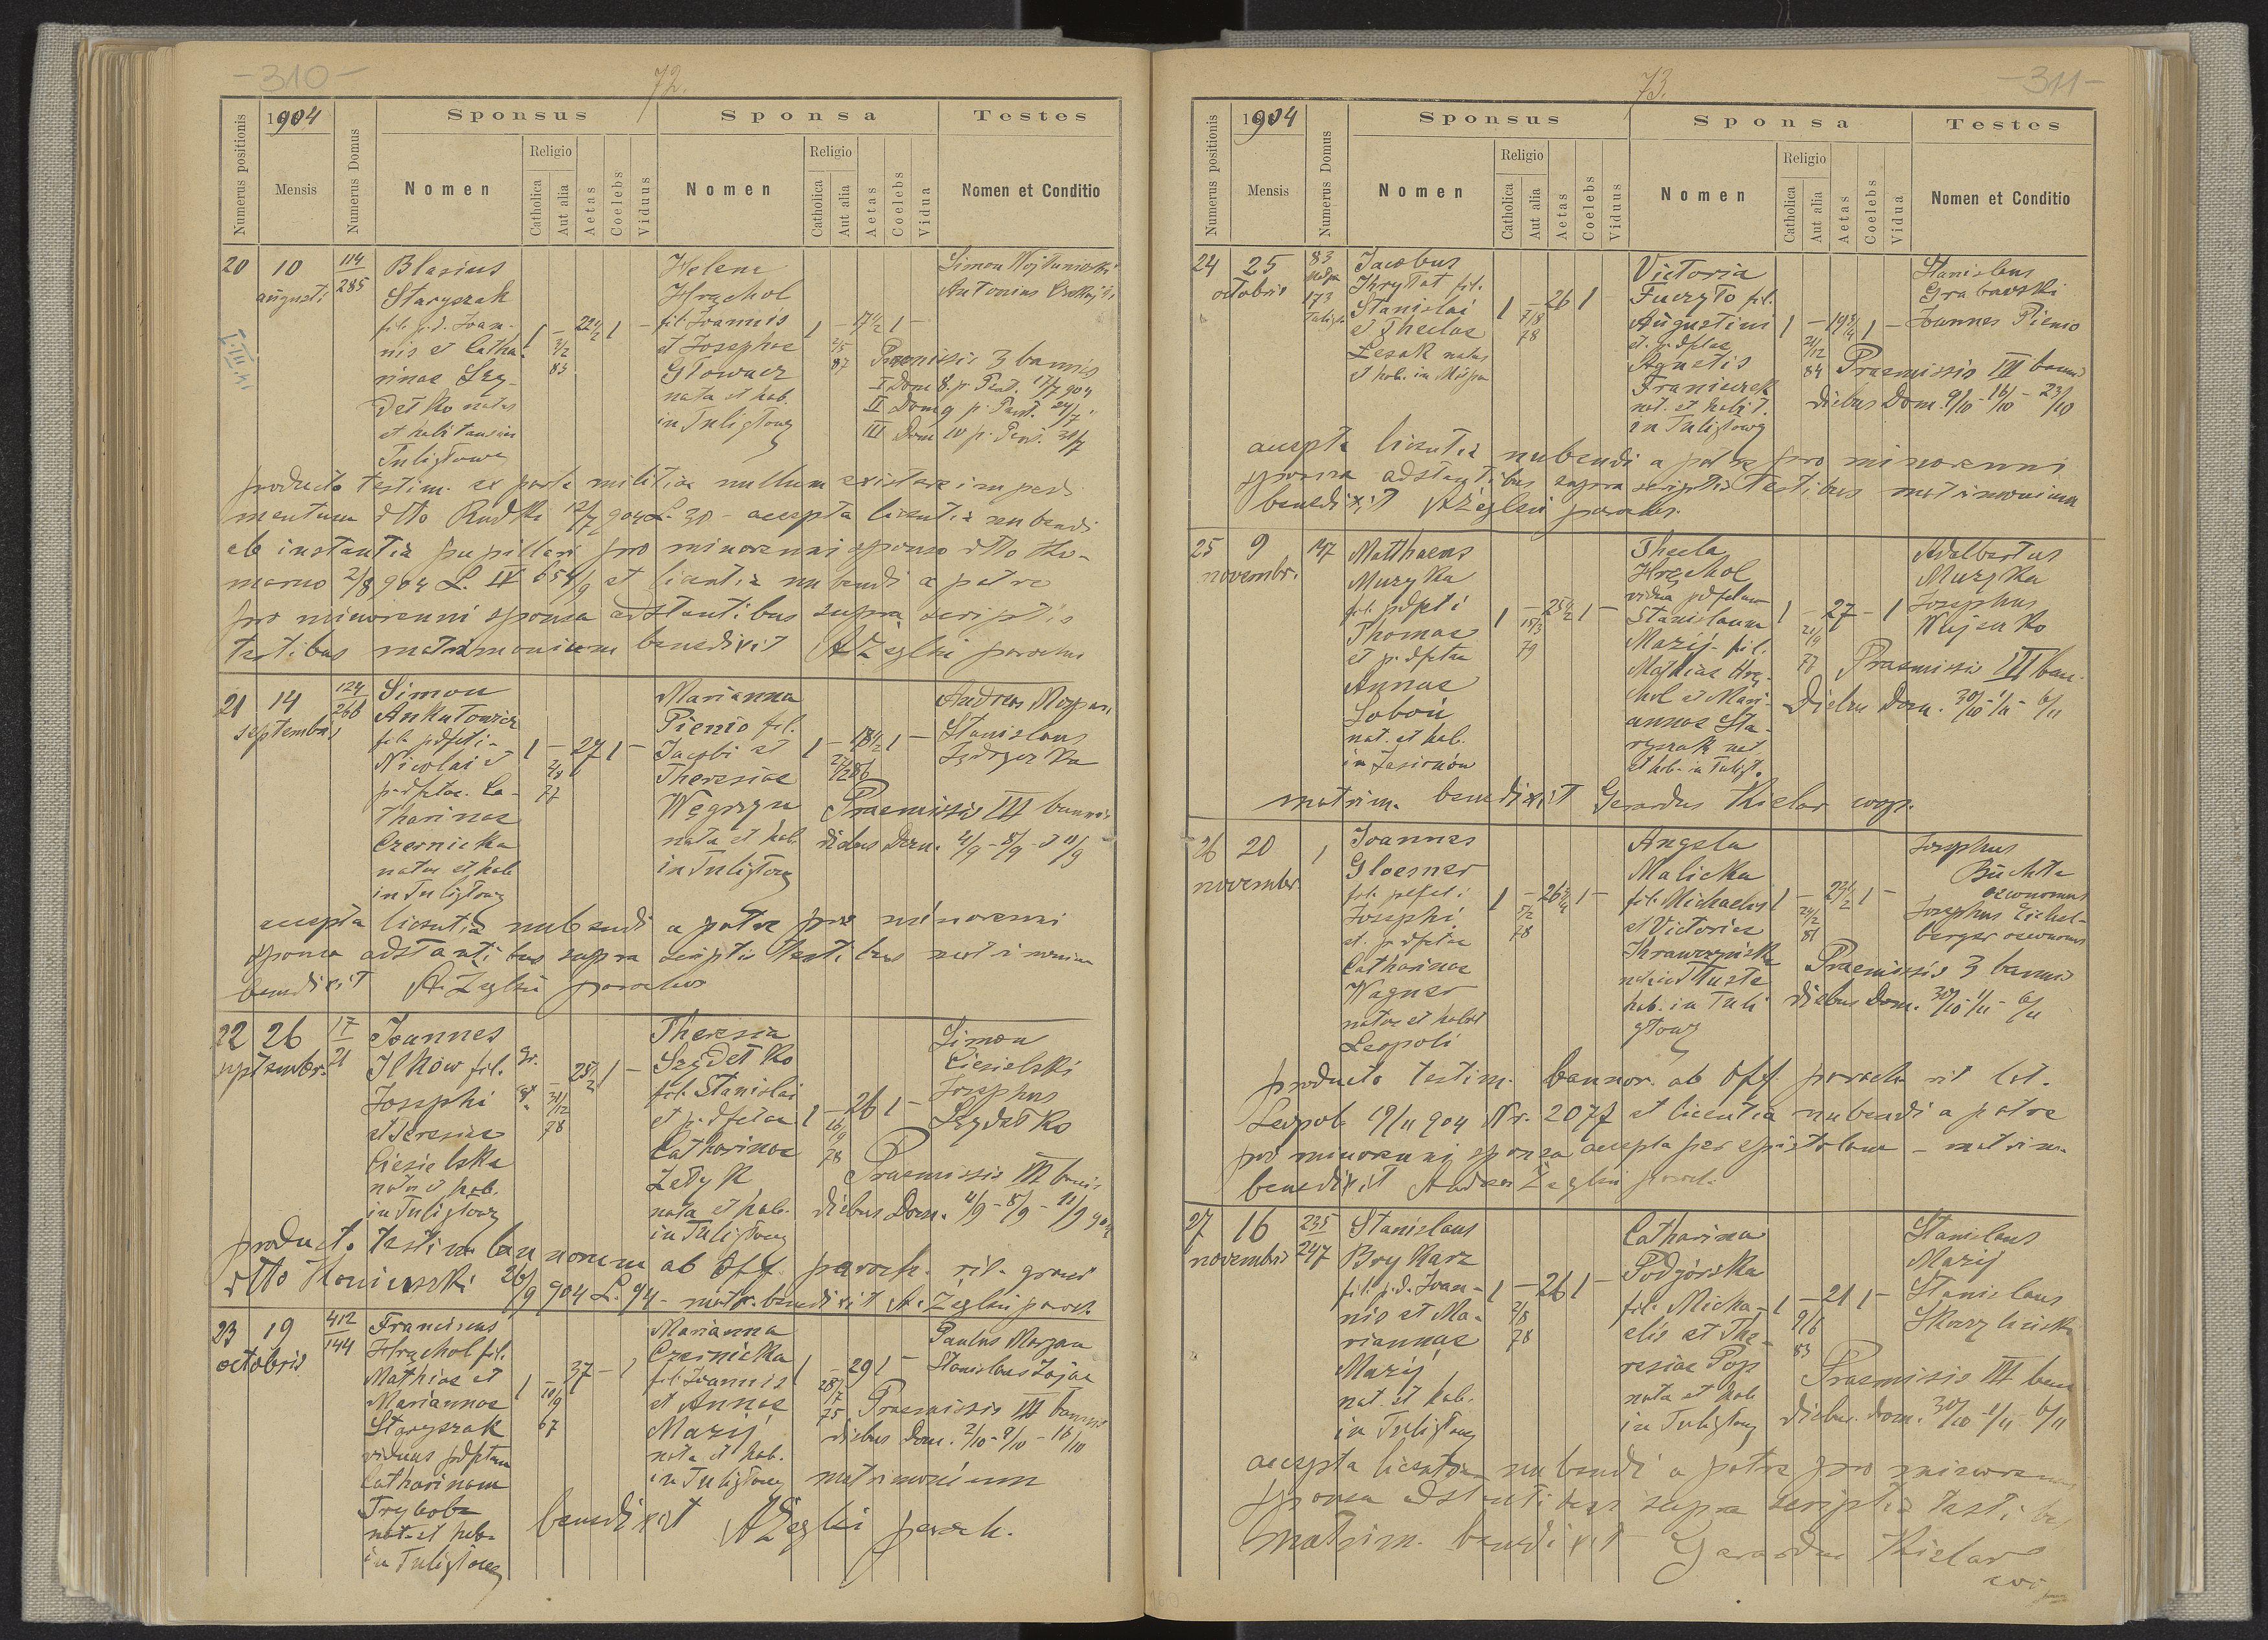 -310-
72.
Numerus positionis
1904
Mensis
Numerus Domus
Sponsus
Nomen
Religio
Catholica
Aut alia
Aetas
Coelebs
Viduus
Sponsa
Nomen
Religio
Catholica
Aut alia
Aetas
Coelebs
Vidua
Testes
Nomen et Conditio
20
10
augusti
114
285
Blasius
Staryszak
fil. p.d. Joan-
nis et Catha-
rinae Szy-
detko natus
et habitans in
Tuligłowy
1 - 22 1/2 1 -
3/2
83
Helena
Hrąchol
fil. Joannis
et Josephae
Głowacz
nata et hab.
in Tuligłowy
1 - 17 1/2 1 -
2/5
87
Simon Wojtunio
Antonius
Praemissis 3 bannis
I Dom 8. p. Pent. 17/7 904
II Dom 9 p. Pent. 24/7 "
III Dom 10 p. Pent. 31/7
producto testim. ex parte militiae nullum existere impedi
mentum dtto Rudki 12/7 904 L. 30 - accepta licentia nubendi
ab instantia pupillari pro minorenni sponso dtto Ko-
marno 2/8 904 L. IV 654/9 et licentia nubendi a patre
pro minorenni sponsa adstantibus supra scriptis
testibus matrimonium benedixit A Żegliń parochus
21
14
septembris
124
266
Simon
Ankutowicz
fil. pdfcti-
Nicolai et
p. dfctae. Ca-
tharinae
Czernicka
natus et hab
in Tuligłowy
1 - 27 1 -
77
Marianna
Pienio fil.
Jacobi et
Theresiae
Węgrzyn
nata et hab.
in Tuligłowy
1 - 18 1/2 1 -
86
Andreas Mozgan
Stanislaus
Praemissis III bannis
diebus Dom. 4/9 - 8/9 - 11/9
accepta licentia nubendi a patre pro minorenni
sponsa adstantibus supra scriptis testibus matrimonium
benedixit A. Żegliń parochus
22
26
septembr.
17
21
Joannes
Ilków fil.
Josephi
et Teresiae
Ciesielska
natus et hab.
in Tuligłowy
gr.
25 1/2 1 -
31/12
78
Theresia
Szydełko
fil. Stanislai
et p. dfctae.
Catharinae
Zetyk
nata et hab.
in Tuligłowy
1 - 26 1 -
16/9
78
Simon
Ciesielski
Josephus
Szydełko
Praemissis III bannis
diebus Dom. 4/9 - 8/9 - 11/9 904
producto testim bannorum ab Off. paroch. rit. graeci
dtto Koniuszki 26/9 904 L. 94 - matr. benedixit A. Żegliń paroch.
23
19
octobris
412
144
Franciscus
Hrąchol fil.
Mathiae et
Mariannae
Staryszak
viduus pdfctam
Catharinam
Tryboła
nat. et hab.
in Tuligłowy
1 - 37 - 1
10/9
67
Marianna
Czernicka
fil. Joannis
et Annae
Mazij
nata et hab.
in Tuligłowy
1 - 29 1 -
28/7
75
Paulus Mozgan
Stanislaus Zając
Praemissis III bannis
diebus Dom. 2/10 - 9/10 - 16/10
matrimonium
benedixit A Żegliń paroch.
73.
-311-
Numerus positionis
1904
Mensis
Numerus Domus
Sponsus
Nomen
Religio
Catholica
Aut alia
Aetas
Coelebs
Viduus
Sponsa
Nomen
Religio
Catholica
Aut alia
Aetas
Coelebs
Vidua
Testes
Nomen et Conditio
24
25
octobris
83
173
Tuligł.
Jacobus
Kryłat fil.
Stanislai
et Theclae
Lesak natus
et hab. in
1 - 26 1
7/8
78
Victoria
Fuczyło fil.
Augustini
et p. dfctae
Agnetis
Franiczek
nat. et habit.
in Tuligłowy
1 - 19 3/4 1 -
21/12
84
Stanislaus
Grabowski
Joannes Pienio
Praemissis III bannis
diebus Dom. 9/10 - 16/10 - 23/10
accepta licentia nubendi a patre pro minorenni
sponsa adstantibus supra scriptis testibus matrimonium
benedixit A Żegliń parochus.
25
9
novembr.
147
Matthaeus
Muzyka
fil. pdfcti
Thomae
et p. dfctae
Annae
Soboń
nat. et hab.
in Jasionów
1 - 25 1/2 1 -
15/3
79
Thecla
Hrąchol
vidua pdfctum
Stanislaum
Mazij - fil.
Mathiae Hrą-
chol et Mari-
annae Sta-
ryszak nat.
et hab. in Tuligł.
1 - 27 - 1
21/9
77
Adalbertus
Muzyka
Josephus
Wujcko
Praemissis III ban.
Diebus Dom. 30/10 - 1/11 - 6/11
matrim. benedixit Gerardus Kielar coop.
26
20
novembr.
1
Joannes
Gloesner
fil. pdfcti
Josephi
et p. dfctae
Catharinae
Wagner
natus et habit
Leopoli
1 - 26 3/4 1 -
5/2
78
Angela
Malicka
fil. Michaelis
et Victoriae
Krawczyńska
hab. in Tuli
głowy
1 - 23 1/2 1 -
24/2
81
Josephus
Buchta
oeconomus
Josephus Eichel-
berger oeconomus
Praemissis 3 bannis
diebus Dom. 30/10 - 1/11 - 6/11
producto testim. bannor. ab Off. paroch. rit lat.
Leopol. 19/11 904 Nr. 2077 et licentia nubendi a patre
pro minorenni sponsa accepta per epistolam - matrim.
benedixit Andreas Żegliń paroch.
27
16
novembris
235
247
Stanislaus
Brykarz
fil. p.d. Joan-
nis et Ma-
riannae
Mazij
nat. et hab.
in Tuligłowy
1 - 26 1 -
2/8
78
Catharina
Podgórska
fil. Micha-
elis et The-
resiae Pop
nata et hab.
in Tuligłowy
1 - 21 1 -
9/6
83
Stanislaus
Mazij
Stanislaus
Praemissis III ban
diebus. Dom. 30/10 - 1/11 - 6/11
accepta licentia nubendi a patre pro minorenni
sponsa adstantibus supra scriptis testibus
Matrim. benedixit Gerardus Kielar